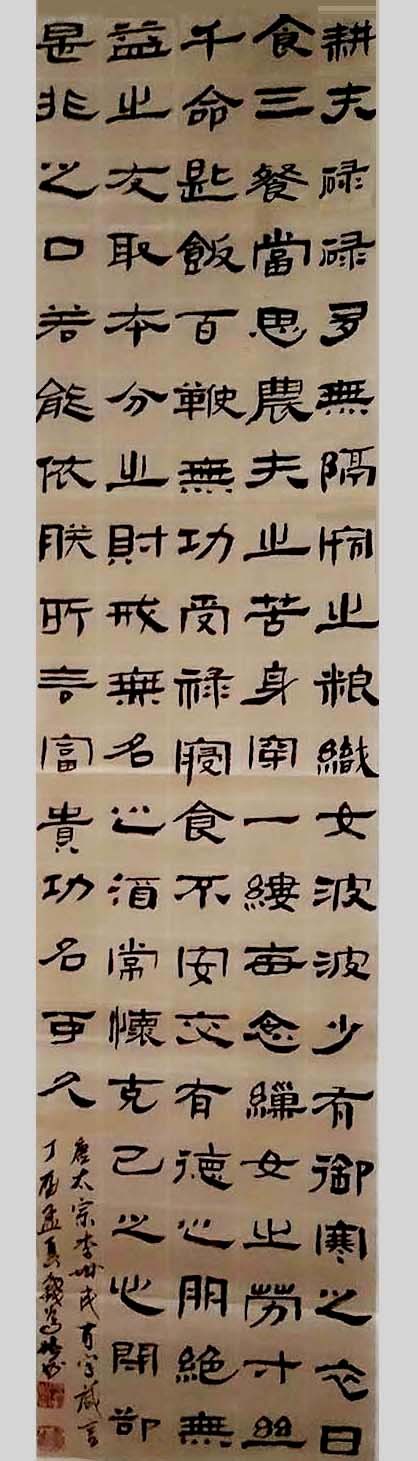 耕夫碌碌多無隔宿之粮織女波波少有御寒之衣日
食三餐當思農夫之苦身穿一縷每念女之勞寸絲
千命匙飯百鞭無功受祿寢食不安交有德之朋絕無
益之友取本分之財戒無名之酒常懷克己之心閉卻
是非之口若能依朕所言富貴功名可久
唐太宗李世民百字箴言
丁酉孟夏書